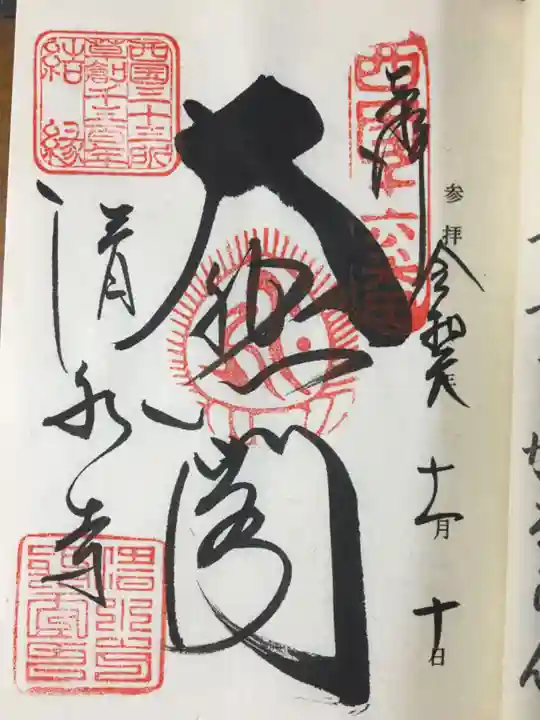 参拝 令和元年 十一月 十日
奉拝
西国十六番
大悲閣
清水寺
西国三十三所
草創千三百年
結縁